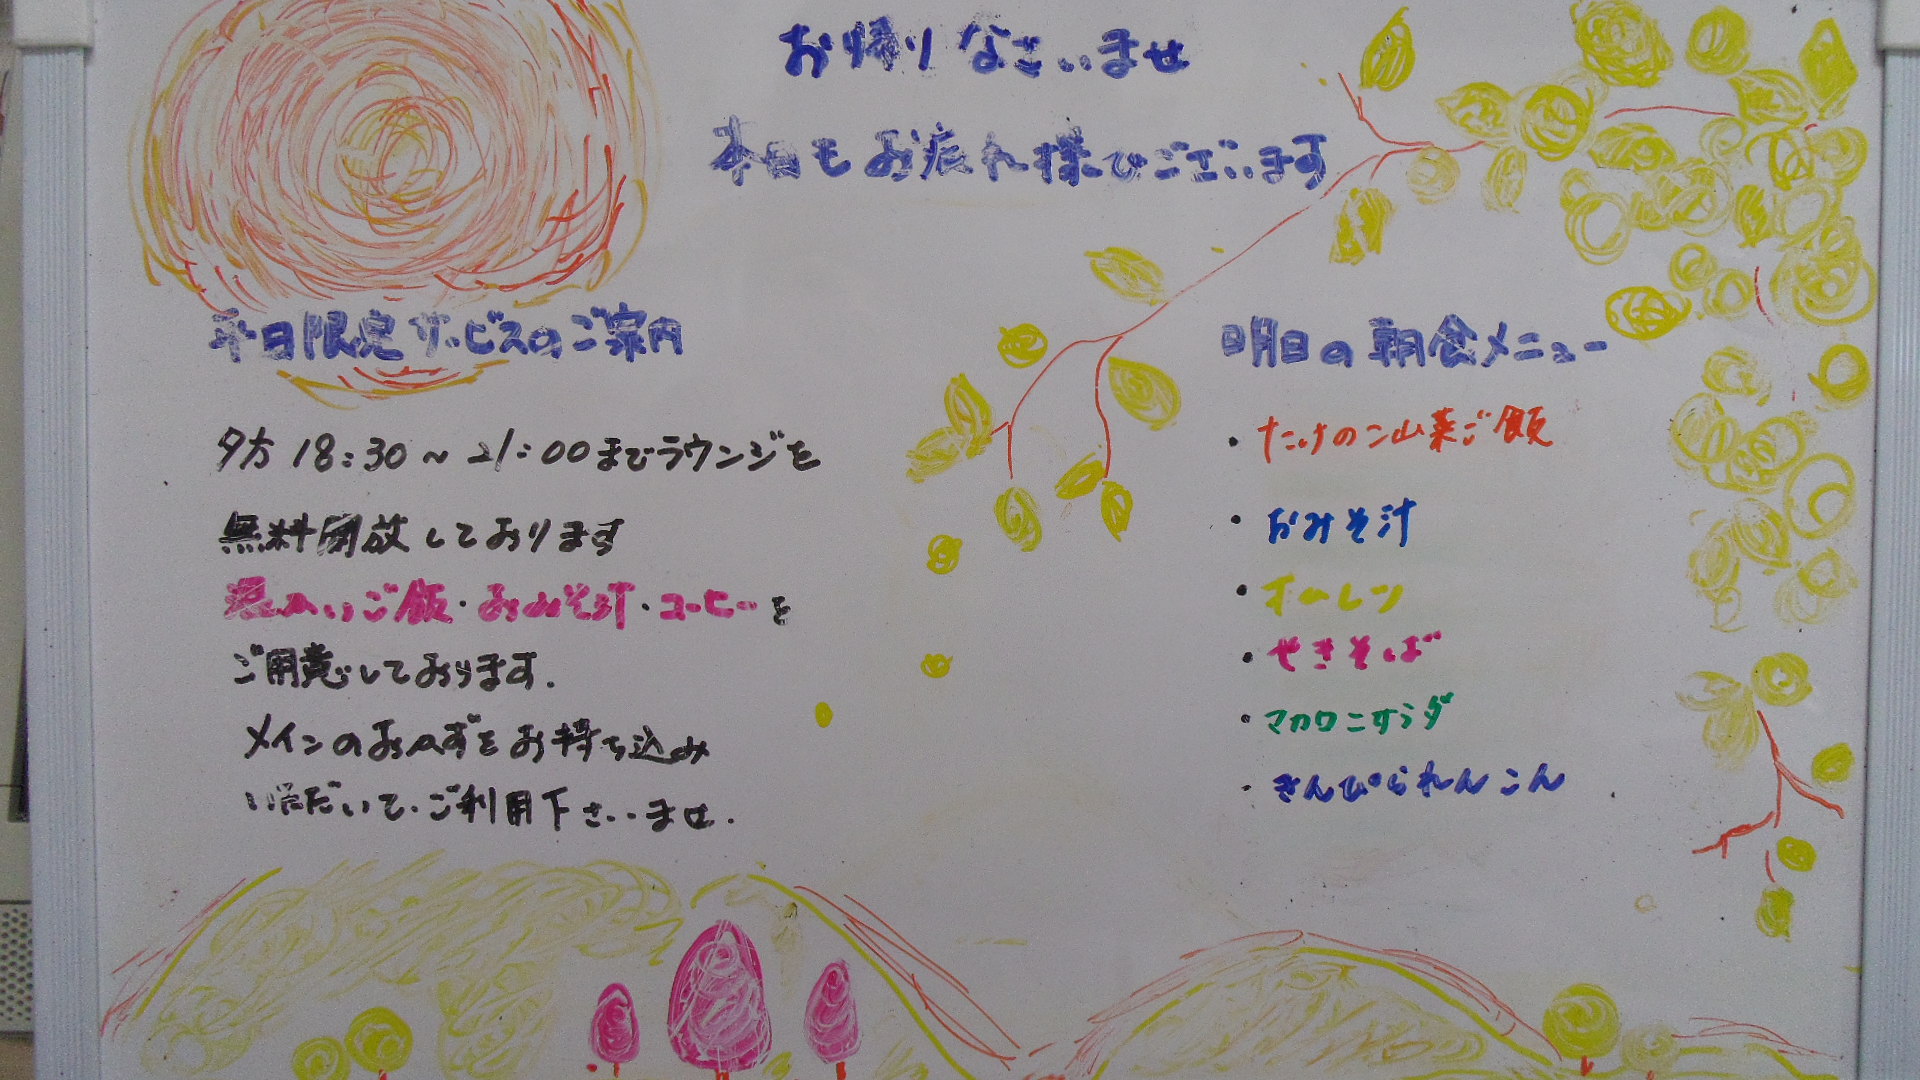 お帰りなさいませ
本日もお疲れ様でございます
平日限定サービスのご案内
夕方 18:30～21:00までラウンジを
無料開放しております
温かいご飯・おみそ汁・コーヒーを
ご用意しております.
メインのおかずをお持ち込み
いただいて、ご利用下さいませ.
明日の朝食メニュー
・たけのこ山菜ご飯
・おみそ汁
・オムレツ
・やきそば
・マカロニサラダ
・きんぴられんこん